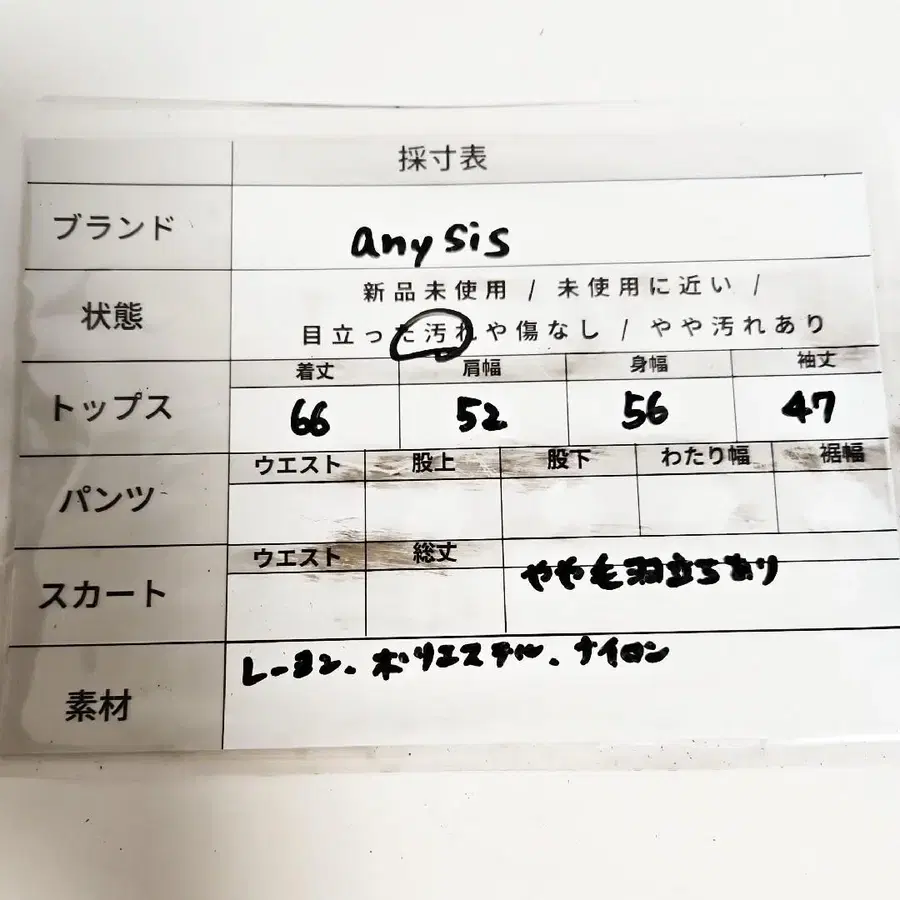 採寸表
ブランド
any sis
状態
新品未使用 / 未使用に近い /
目立った汚れや傷なし / やや汚れあり
トップス
着丈 肩幅 身幅 袖丈
66 52 56 47
パンツ
ウエスト 股上 股下 わたり幅 裾幅
スカート
ウエスト 総丈
やや毛羽立ちあり
素材
レーヨン、ポリエステル、ナイロン